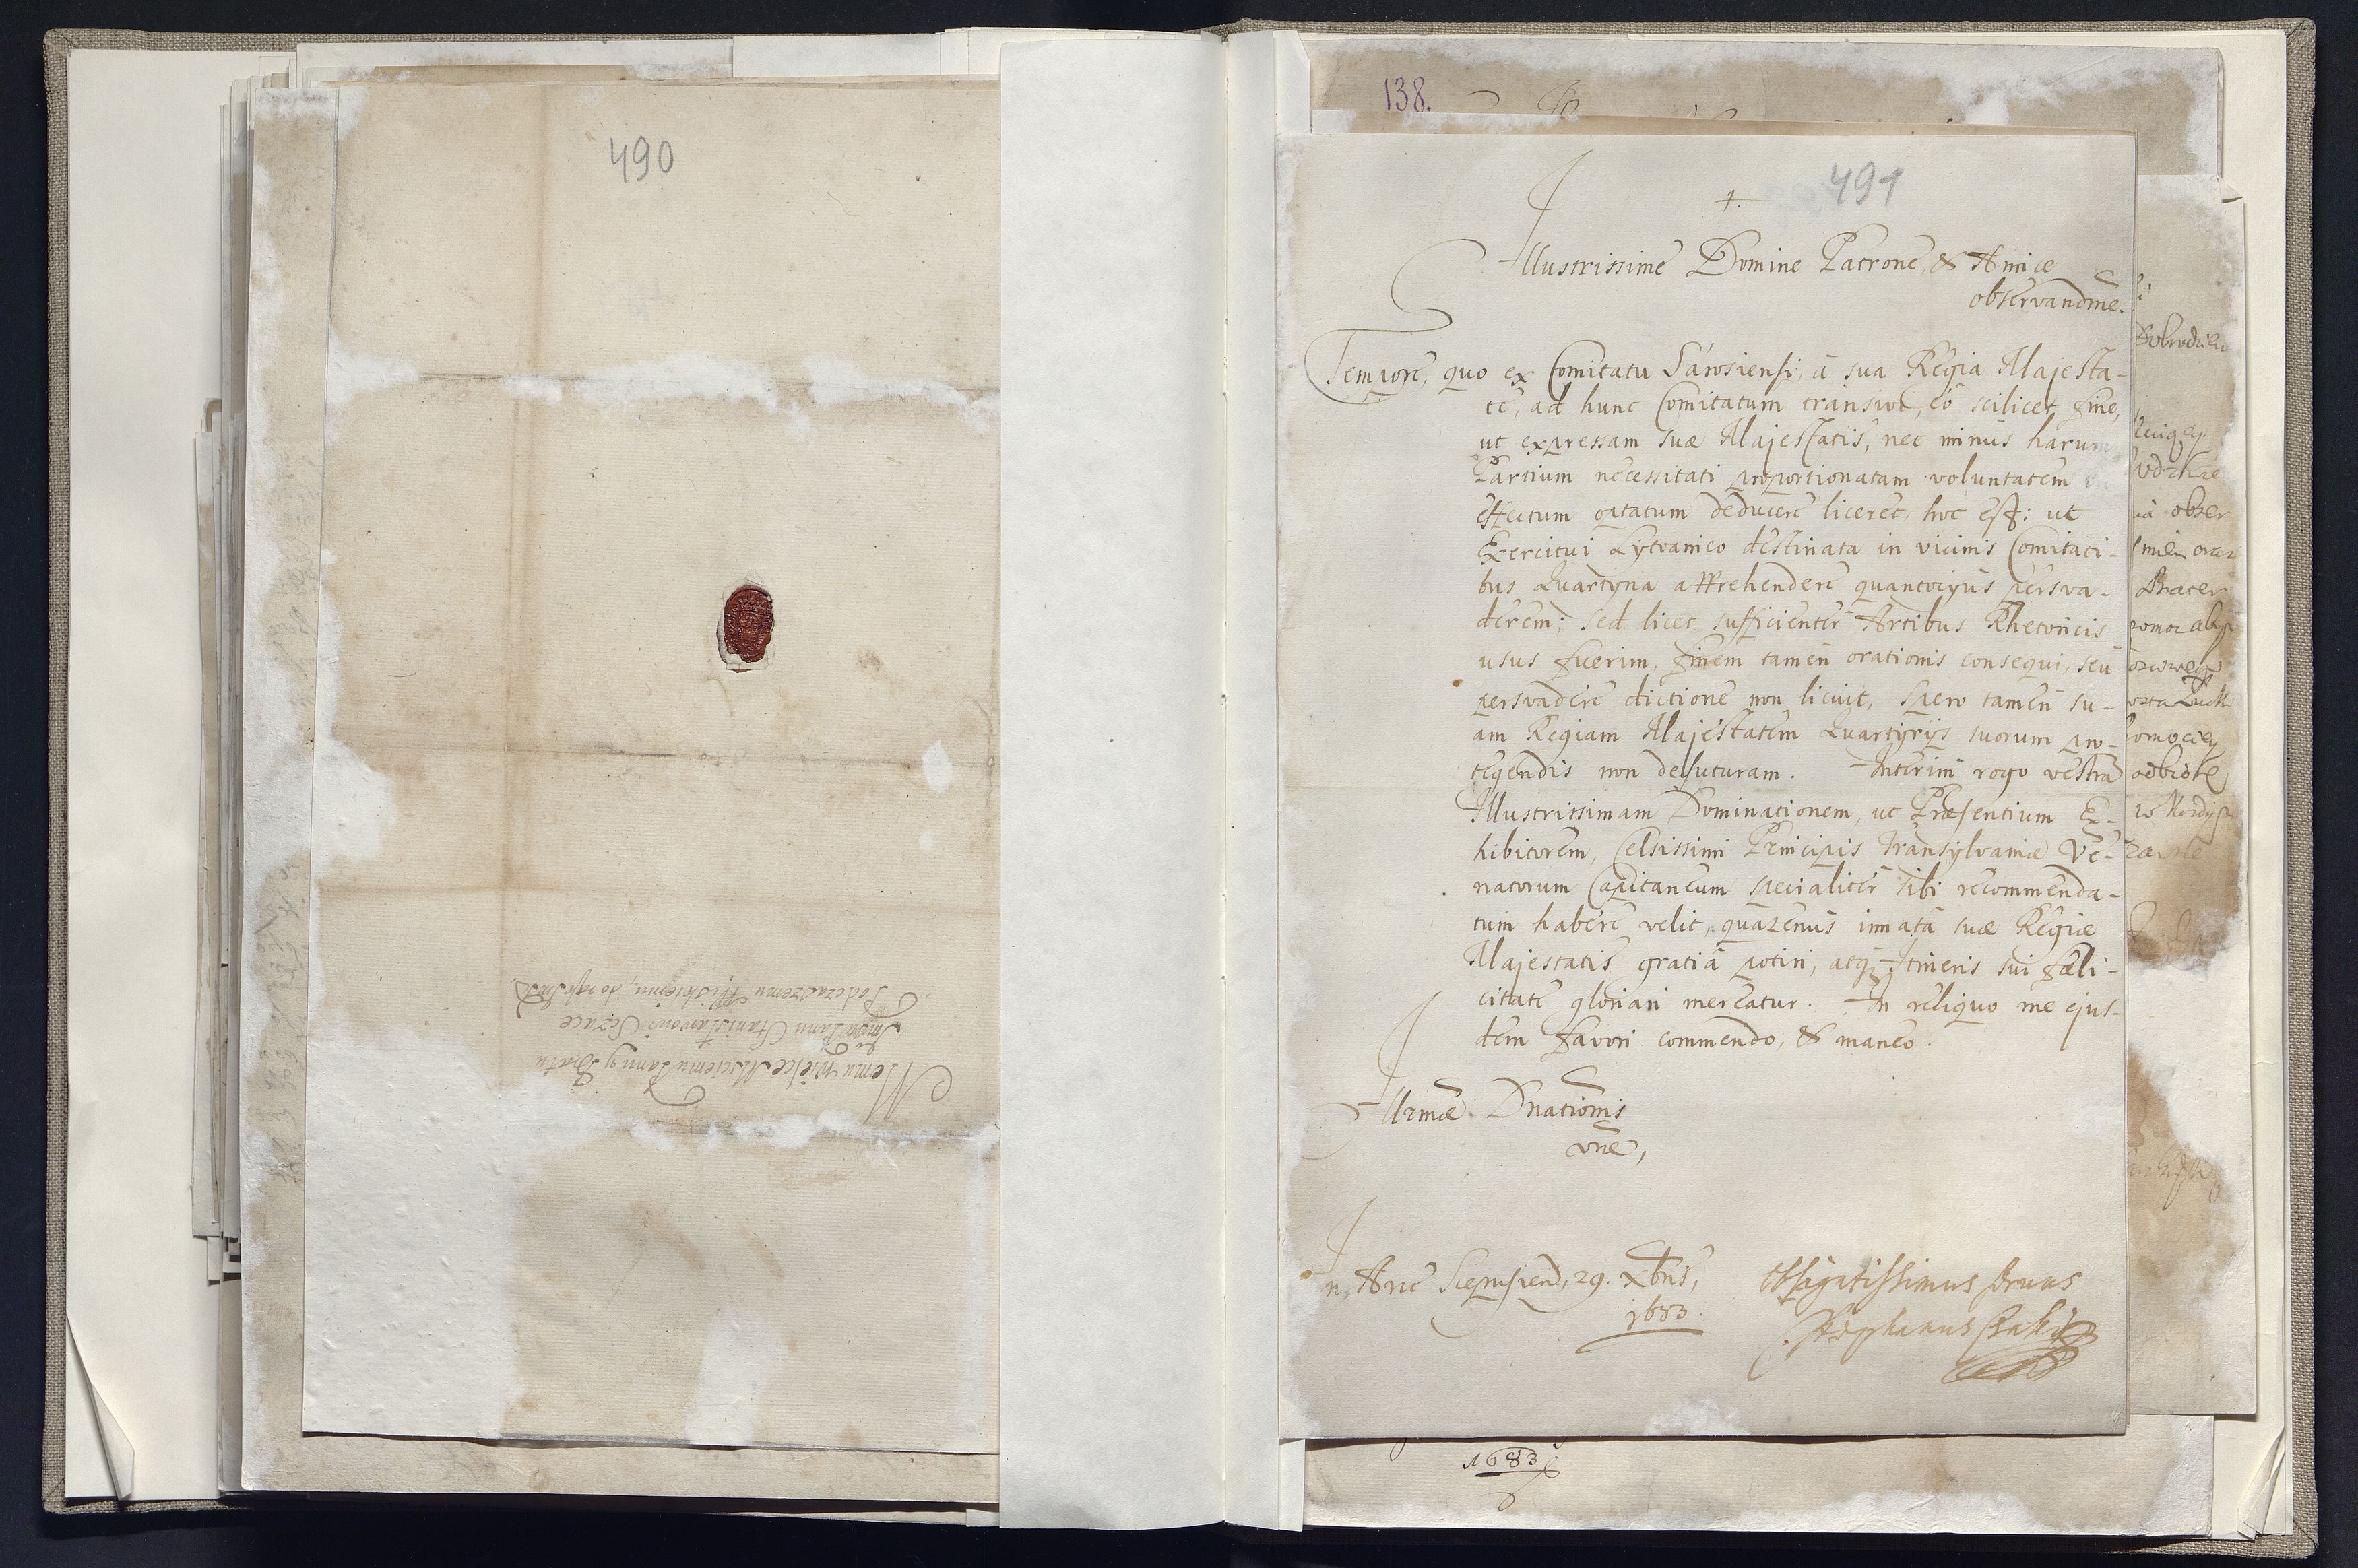 490
Memu wielce Msciemu Panu y Bratu
Jmsci Panu Stanisławowi Sczuce
Podczaszemu Wiskiemu, do rąk
138.
491
Illustrissime Domine Patrone, & Amice
observandme.
Tempore, quo ex Comitatu Sárosiensi, á sua Regia Majesta-
te, ad hunc Comitatum transivi, eó scilicet fine,
ut expressam suæ Majestatis, nec minus harum
Partium necessitati proportionatam voluntatem
effectum optatum deducere liceret, hoc est: ut
Exercitui Lytvanico destinata in vicinis Comitati-
bus Quartyria apprehendere quantocyus persva-
derem; Sed licet sufficienter Artibus Rhetoricis
usus fuerim, finem tamen orationis consequi, seu
persvadere dictione non licuit, spero tamen su-
am Regiam Majestatem Quartyrijs suorum pro-
tegendis non defuturam. Interim rogo vestrã
Illustrissimam Dominationem, ut Præsentium Ex-
hibitorem, Celsissimi Principis Transylvaniæ Ve-
natorum Capitaneum specialiter sibi recommenda-
tum habere velit, quatenus innatâ suæ Regiæ
Majestatis gratiâ potiri, atq; Itineris sui fæli-
citate gloriari mereatur. In reliquo me ejus-
dem favori commendo, & maneo.
Illrmæ Dnationis
vræ,
In Arce Scepusien, 29. Xbris,
1683.
obligatissimus servus
Stephanus Csaki
1683